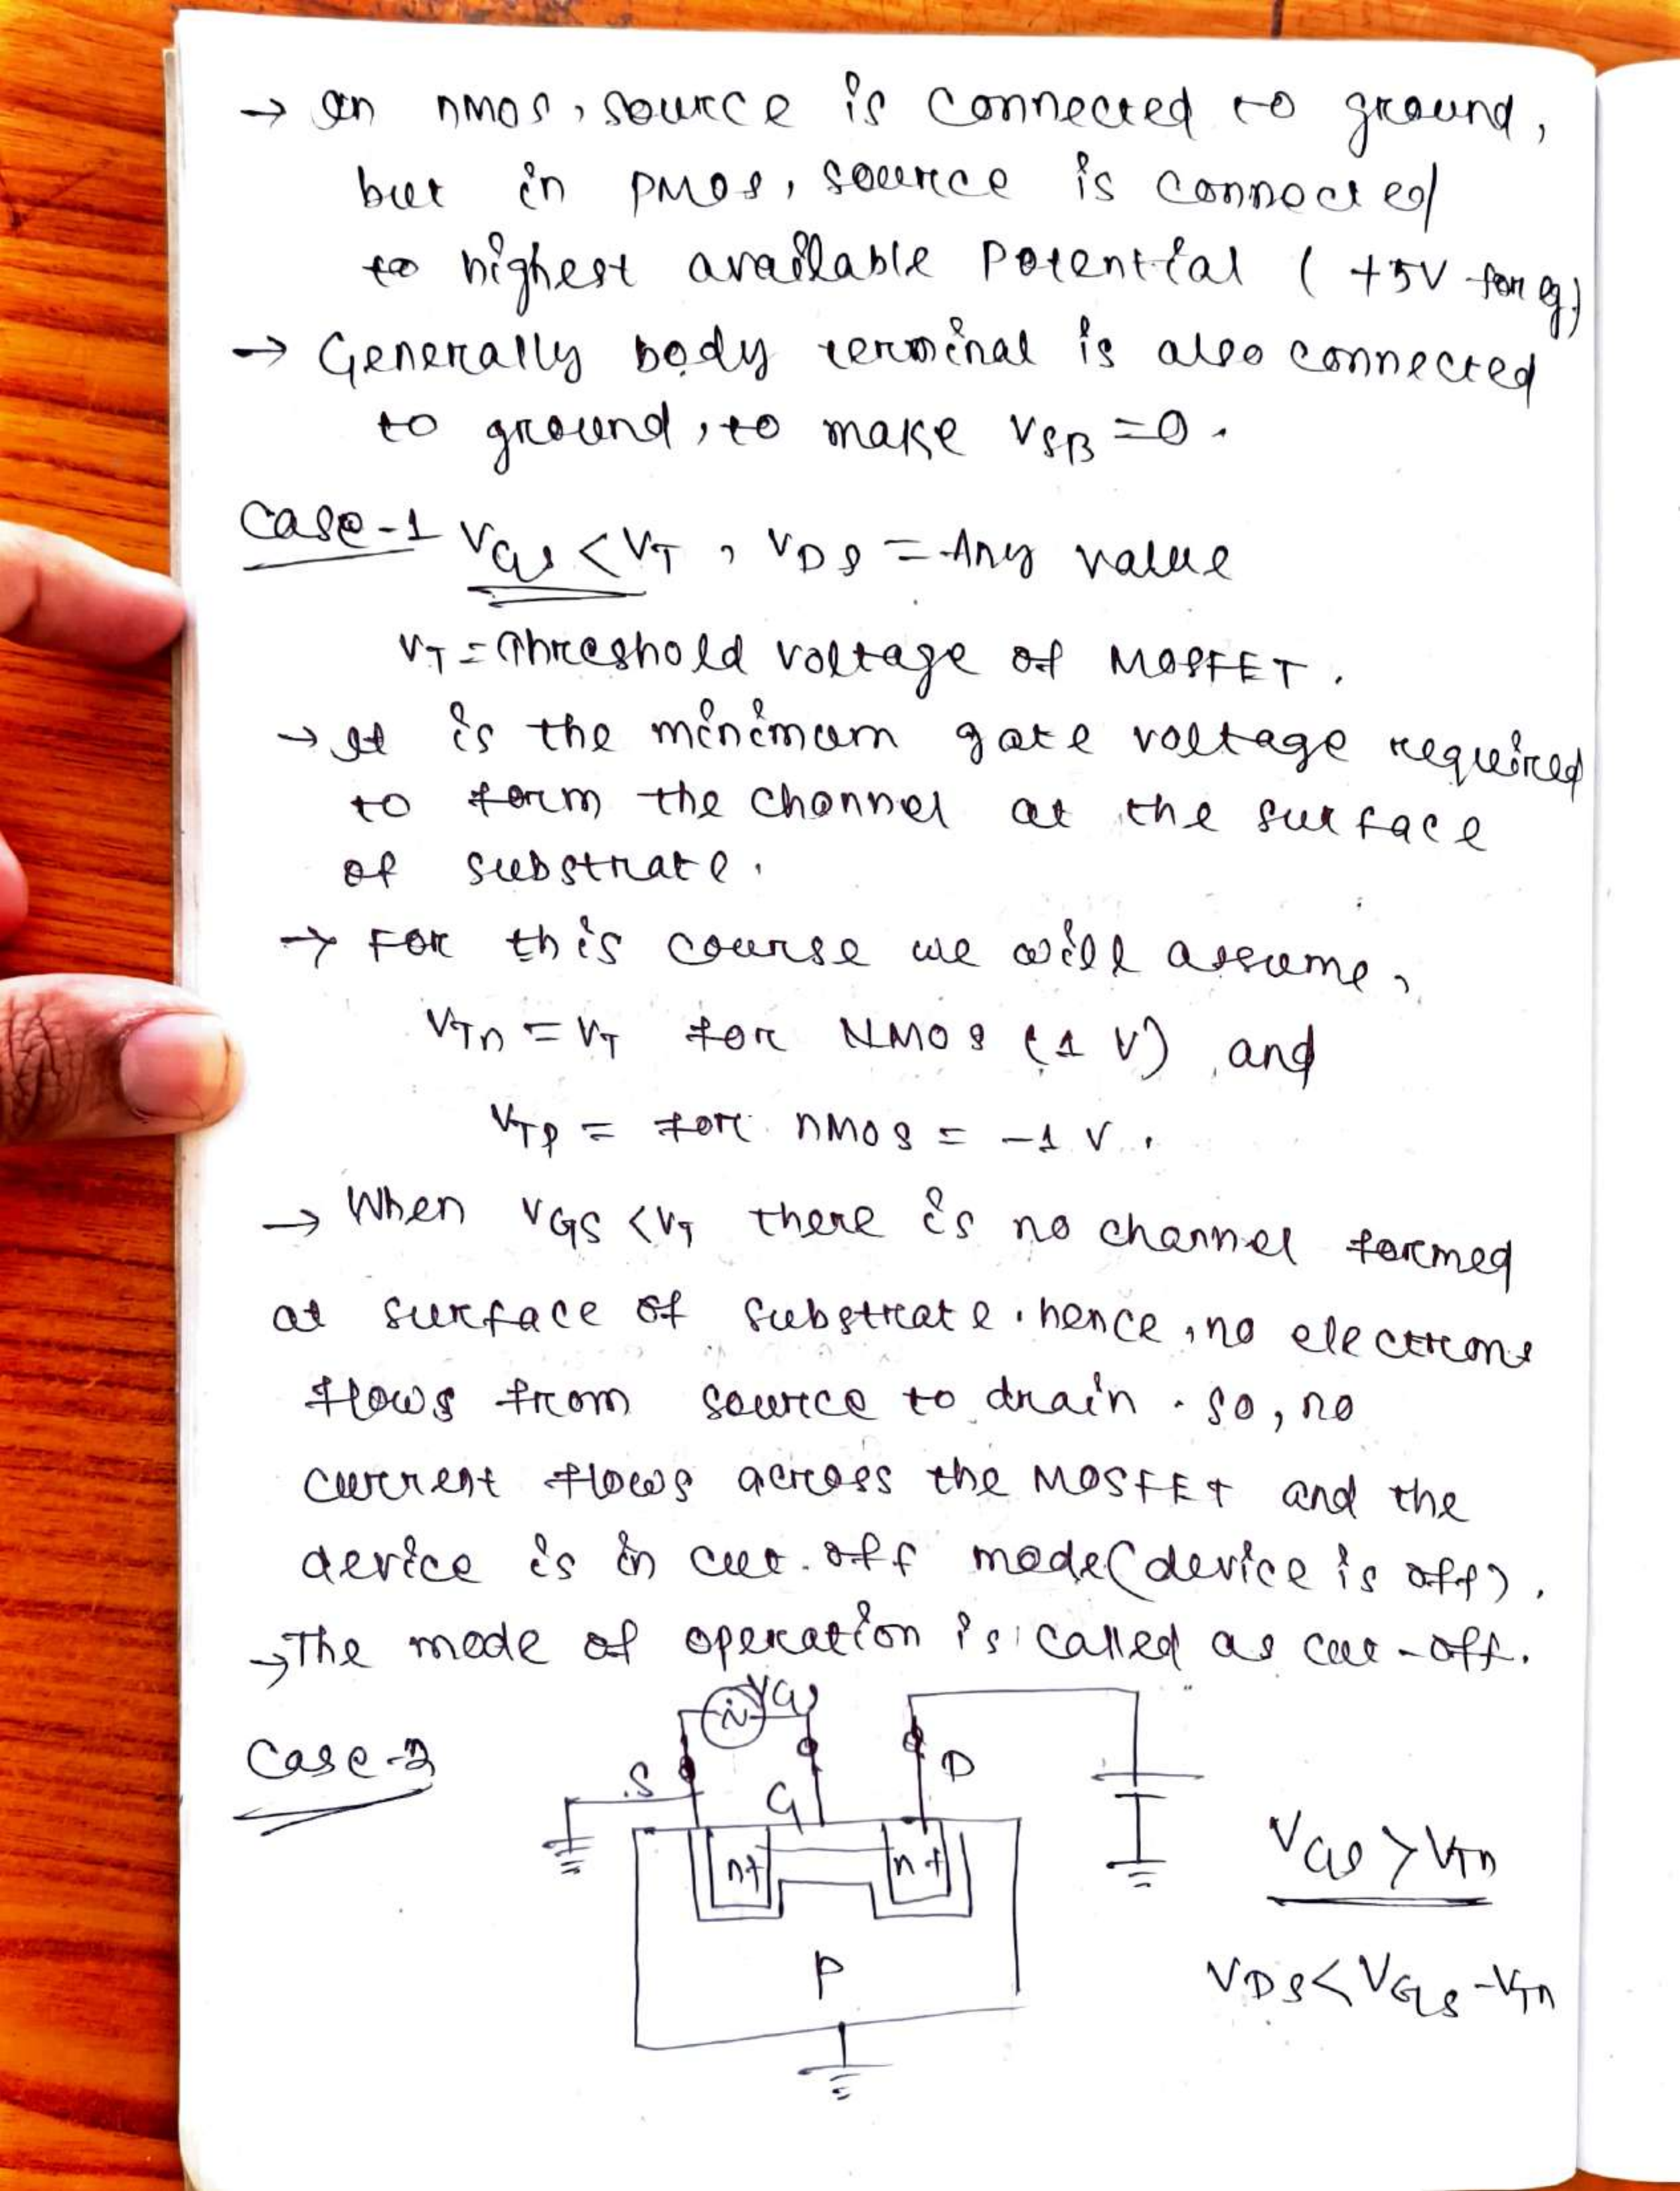 → In nmos, source is connected to ground,
but in PMOS, source is connected
to highest available Potential ( +5V for eg)
→ Generally body terminal is also connected
to ground, to make VSB = 0.
Case-1 VGS < VT , VDS = Any value
VT = Threshold voltage of MOSFET.
→ It is the minimum gate voltage required
to form the channel at the surface
of substrate.
→ For this course we will assume,
VTn = VT for NMOS (1 V) and
VTP = for nMOS = -1 V.
→ When VGS < VT there is no channel formed
at surface of substrate. hence, no electrons
flows from source to drain. So, no
current flows across the MOSFET and the
device is in cut-off mode (device is off).
→ The mode of operation is called as cut-off.
Case-2
VGS
S
G
D
n+
n+
P
VGS > VTn
VDS < VGS - VTn